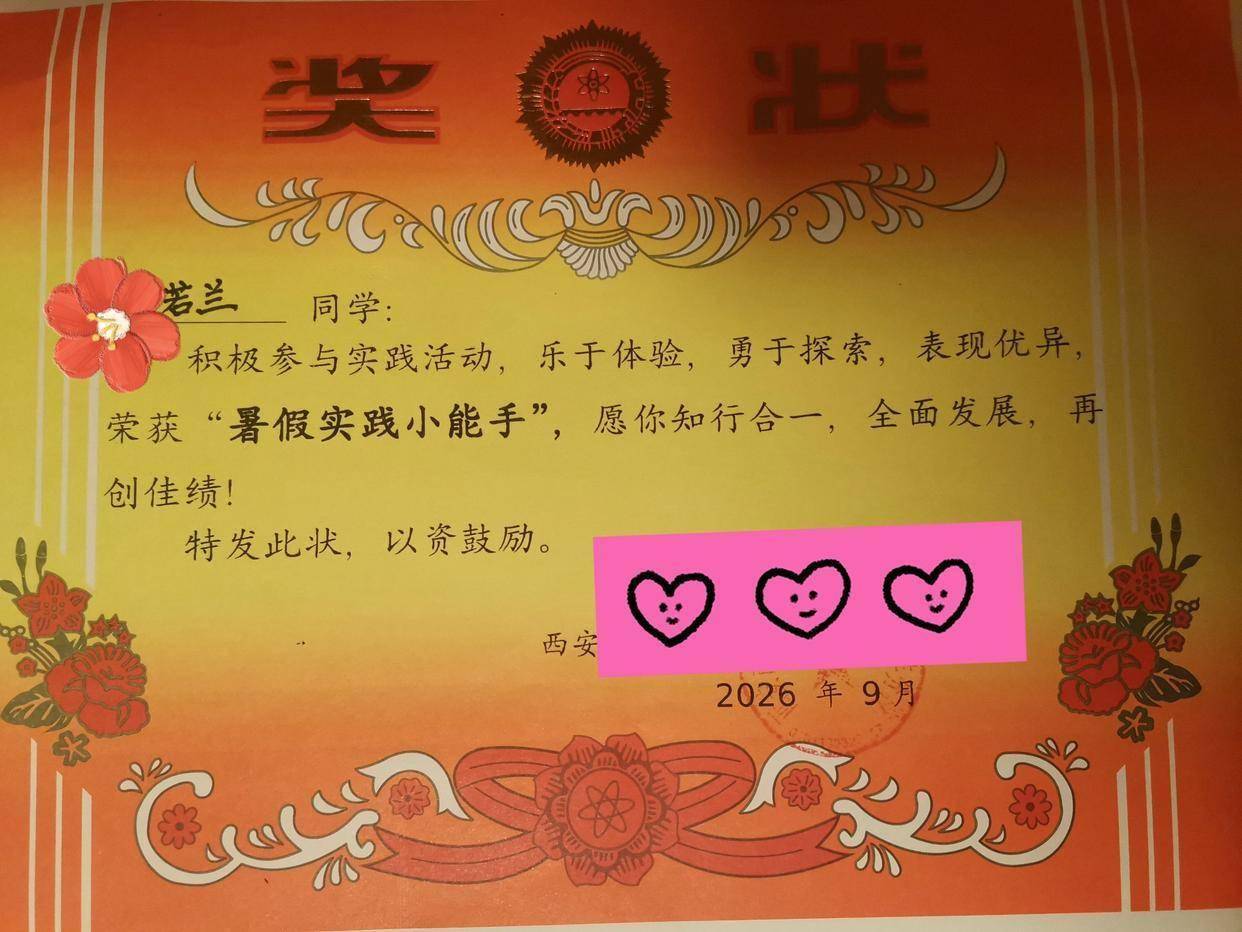 奖状
若兰 同学:
积极参与实践活动，乐于体验，勇于探索，表现优异，
荣获“暑假实践小能手”，愿你知行合一，全面发展，再
创佳绩!
特发此状，以资鼓励。
西安
2026 年 9 月